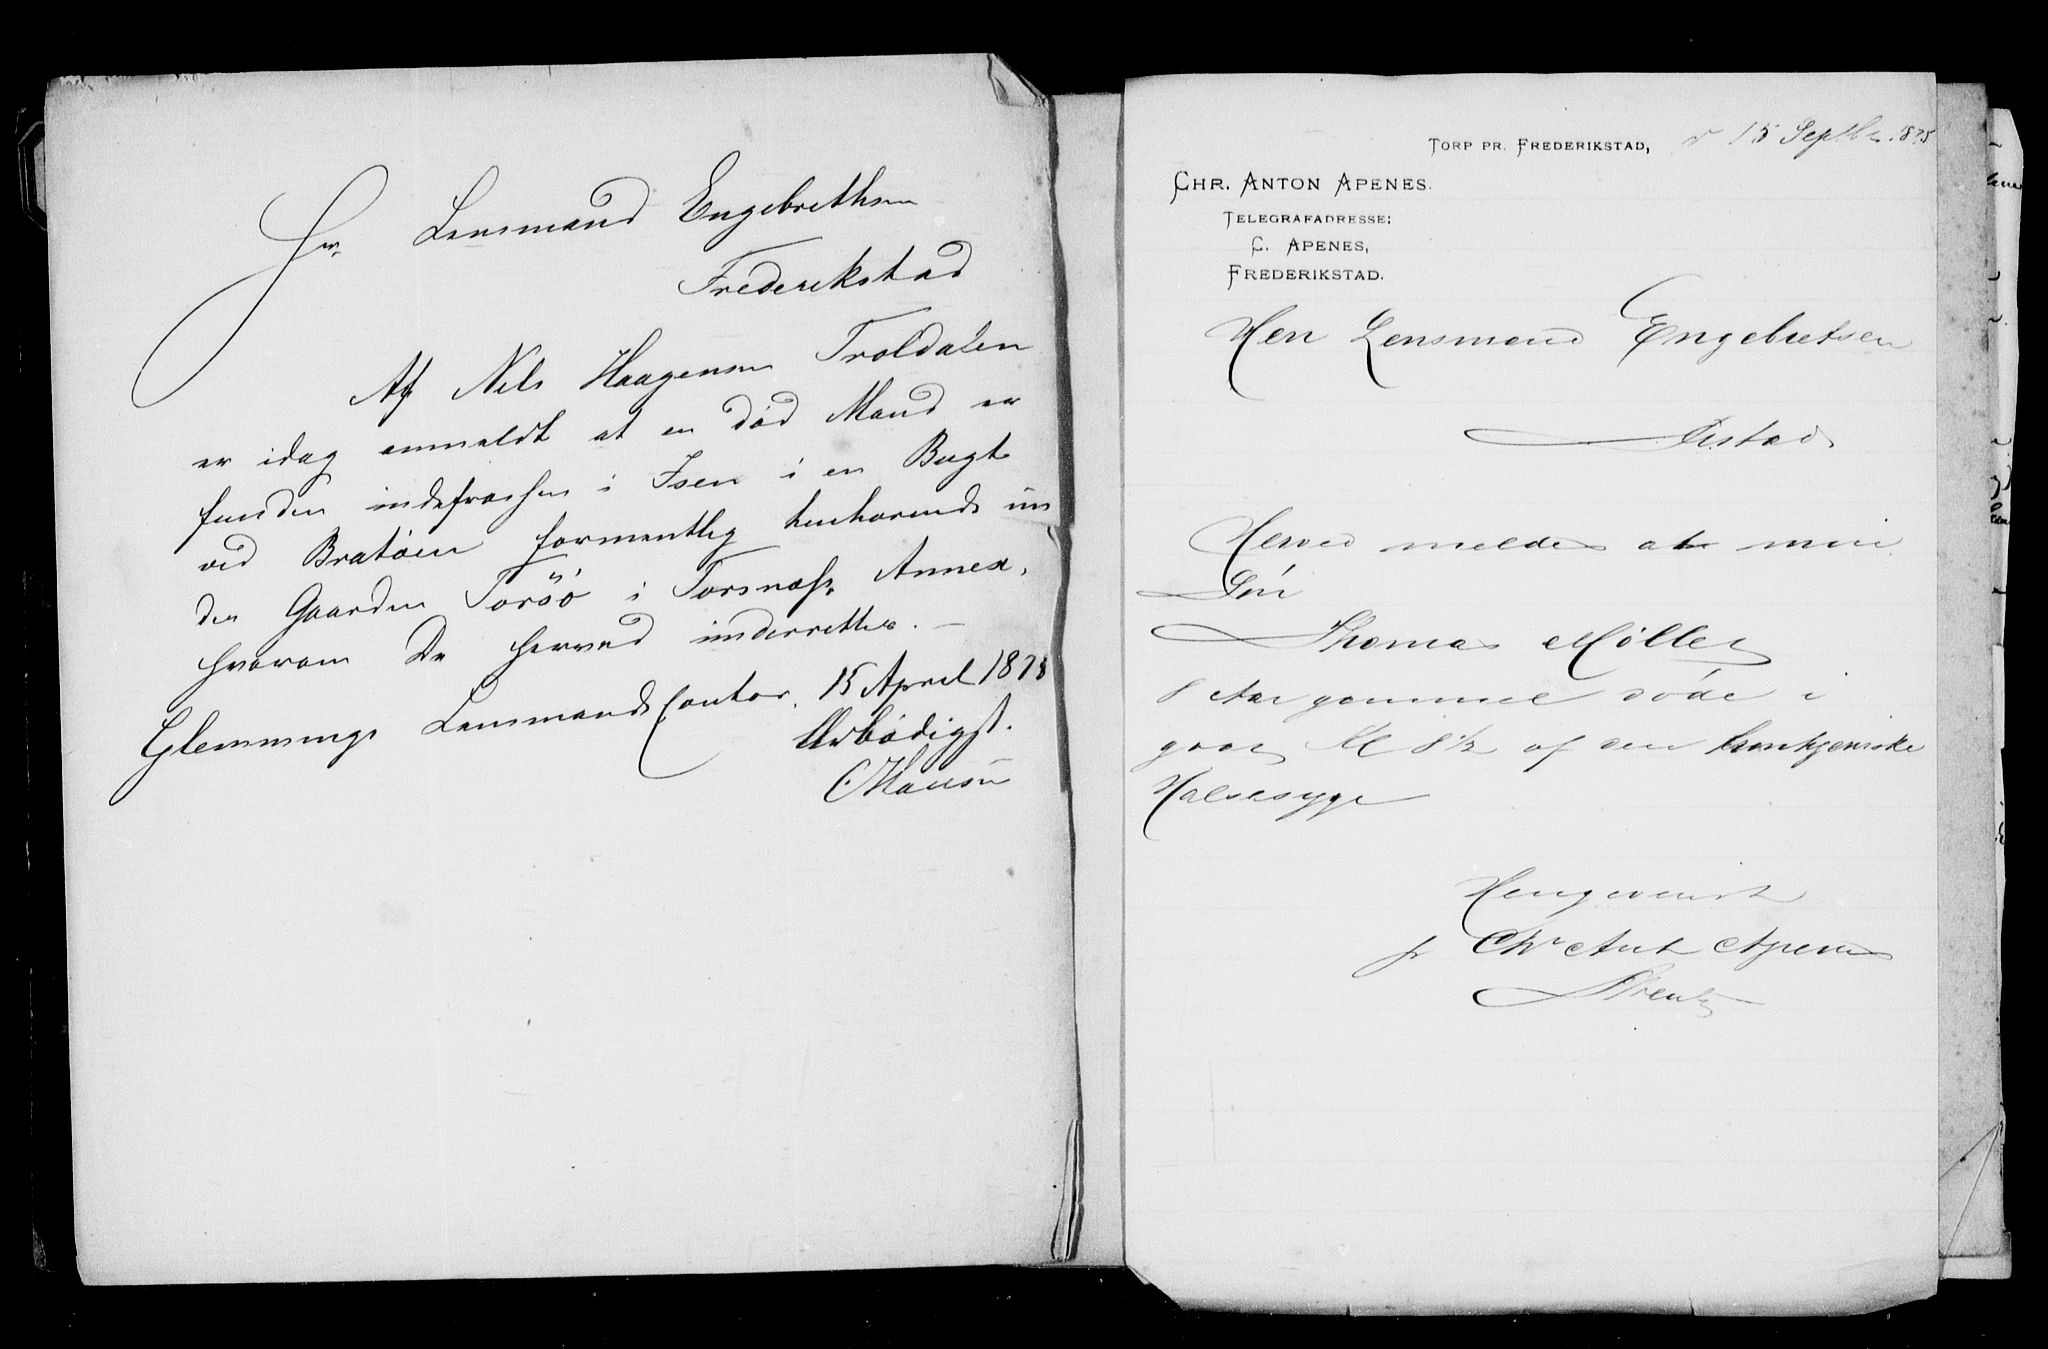 Hr. Lensmand Engebrethsen
Frederikstad
Af Nils Haagensen Troldalen
er idag anmeldt at en død Mand er
funden indefrossen i Isen i en Bugt
ved Bratøen formentlig henhørende un
der Gaarden Torsö i Torsnæss Annex,
hvorom De herved underrettes. —
Glemminge Lensmandscontor, 15 April 1878
Ærbødigst.
CHansen
TORP PR. FREDERIKSTAD, d 15 Septbr 1878
CHR. ANTON APENES.
TELEGRAFADRESSE:
C. APENES,
FREDERIKSTAD.
Herr Lensmand Engebretsen
Herved meldes at min
Søn
Thomas Møller
8 Aar gammel døde i
gaar Kl 8½ af den
Halsesyge
Hengivenst
pr Chr Ant Apenes